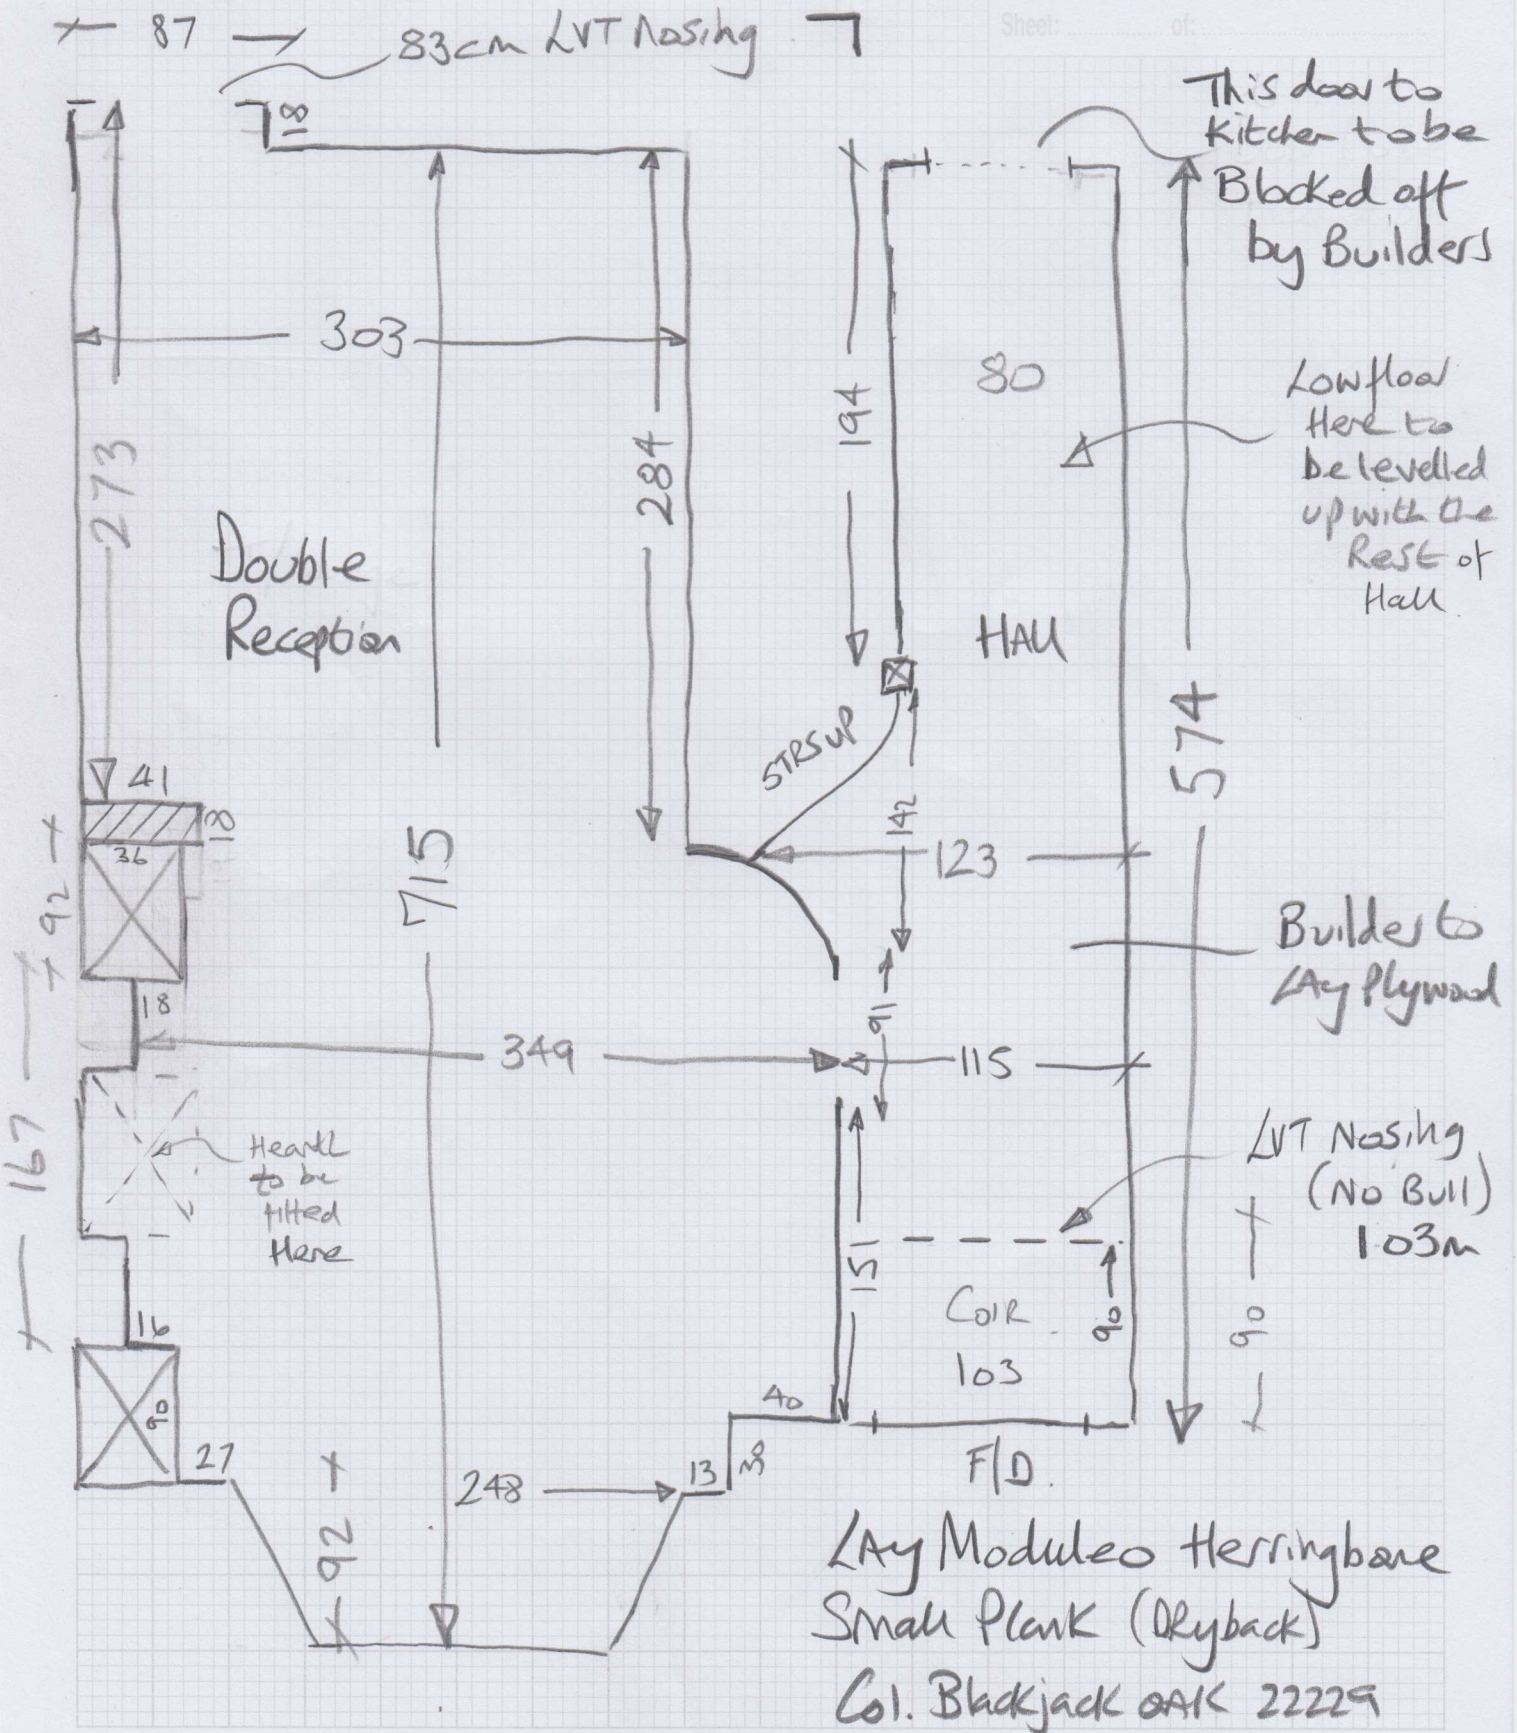 Sheet: of:
87
83cm LVT Nosing
18
This door to
Kitchen to be
Blocked off
by Builders
303
80
194
273
284
Low floor
Here to
be levelled
up with the
Rest of
Hall
Double
Reception
HALL
STRS UP
574
41
18
36
92
715
142
123
Builder to
LAy Plywood
18
91
349
115
167
Hearth
to be
fitted
Here
LVT Nosing
(No Bull)
1.03m
151
COIR
103
90
90
16
90
40
27
13
38
248
F/D.
92
LAy Moduleo Herringbone
Small Plank (Dryback)
Col. Blackjack OAK 22229